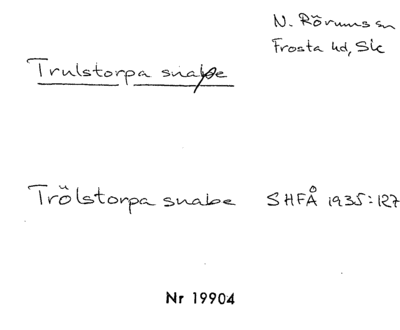 N. Rörums sn
Frosta hd, Sk
Trulstorpa snape
Trölstorpa snabe SHFÅ 1935:127
Nr 19904